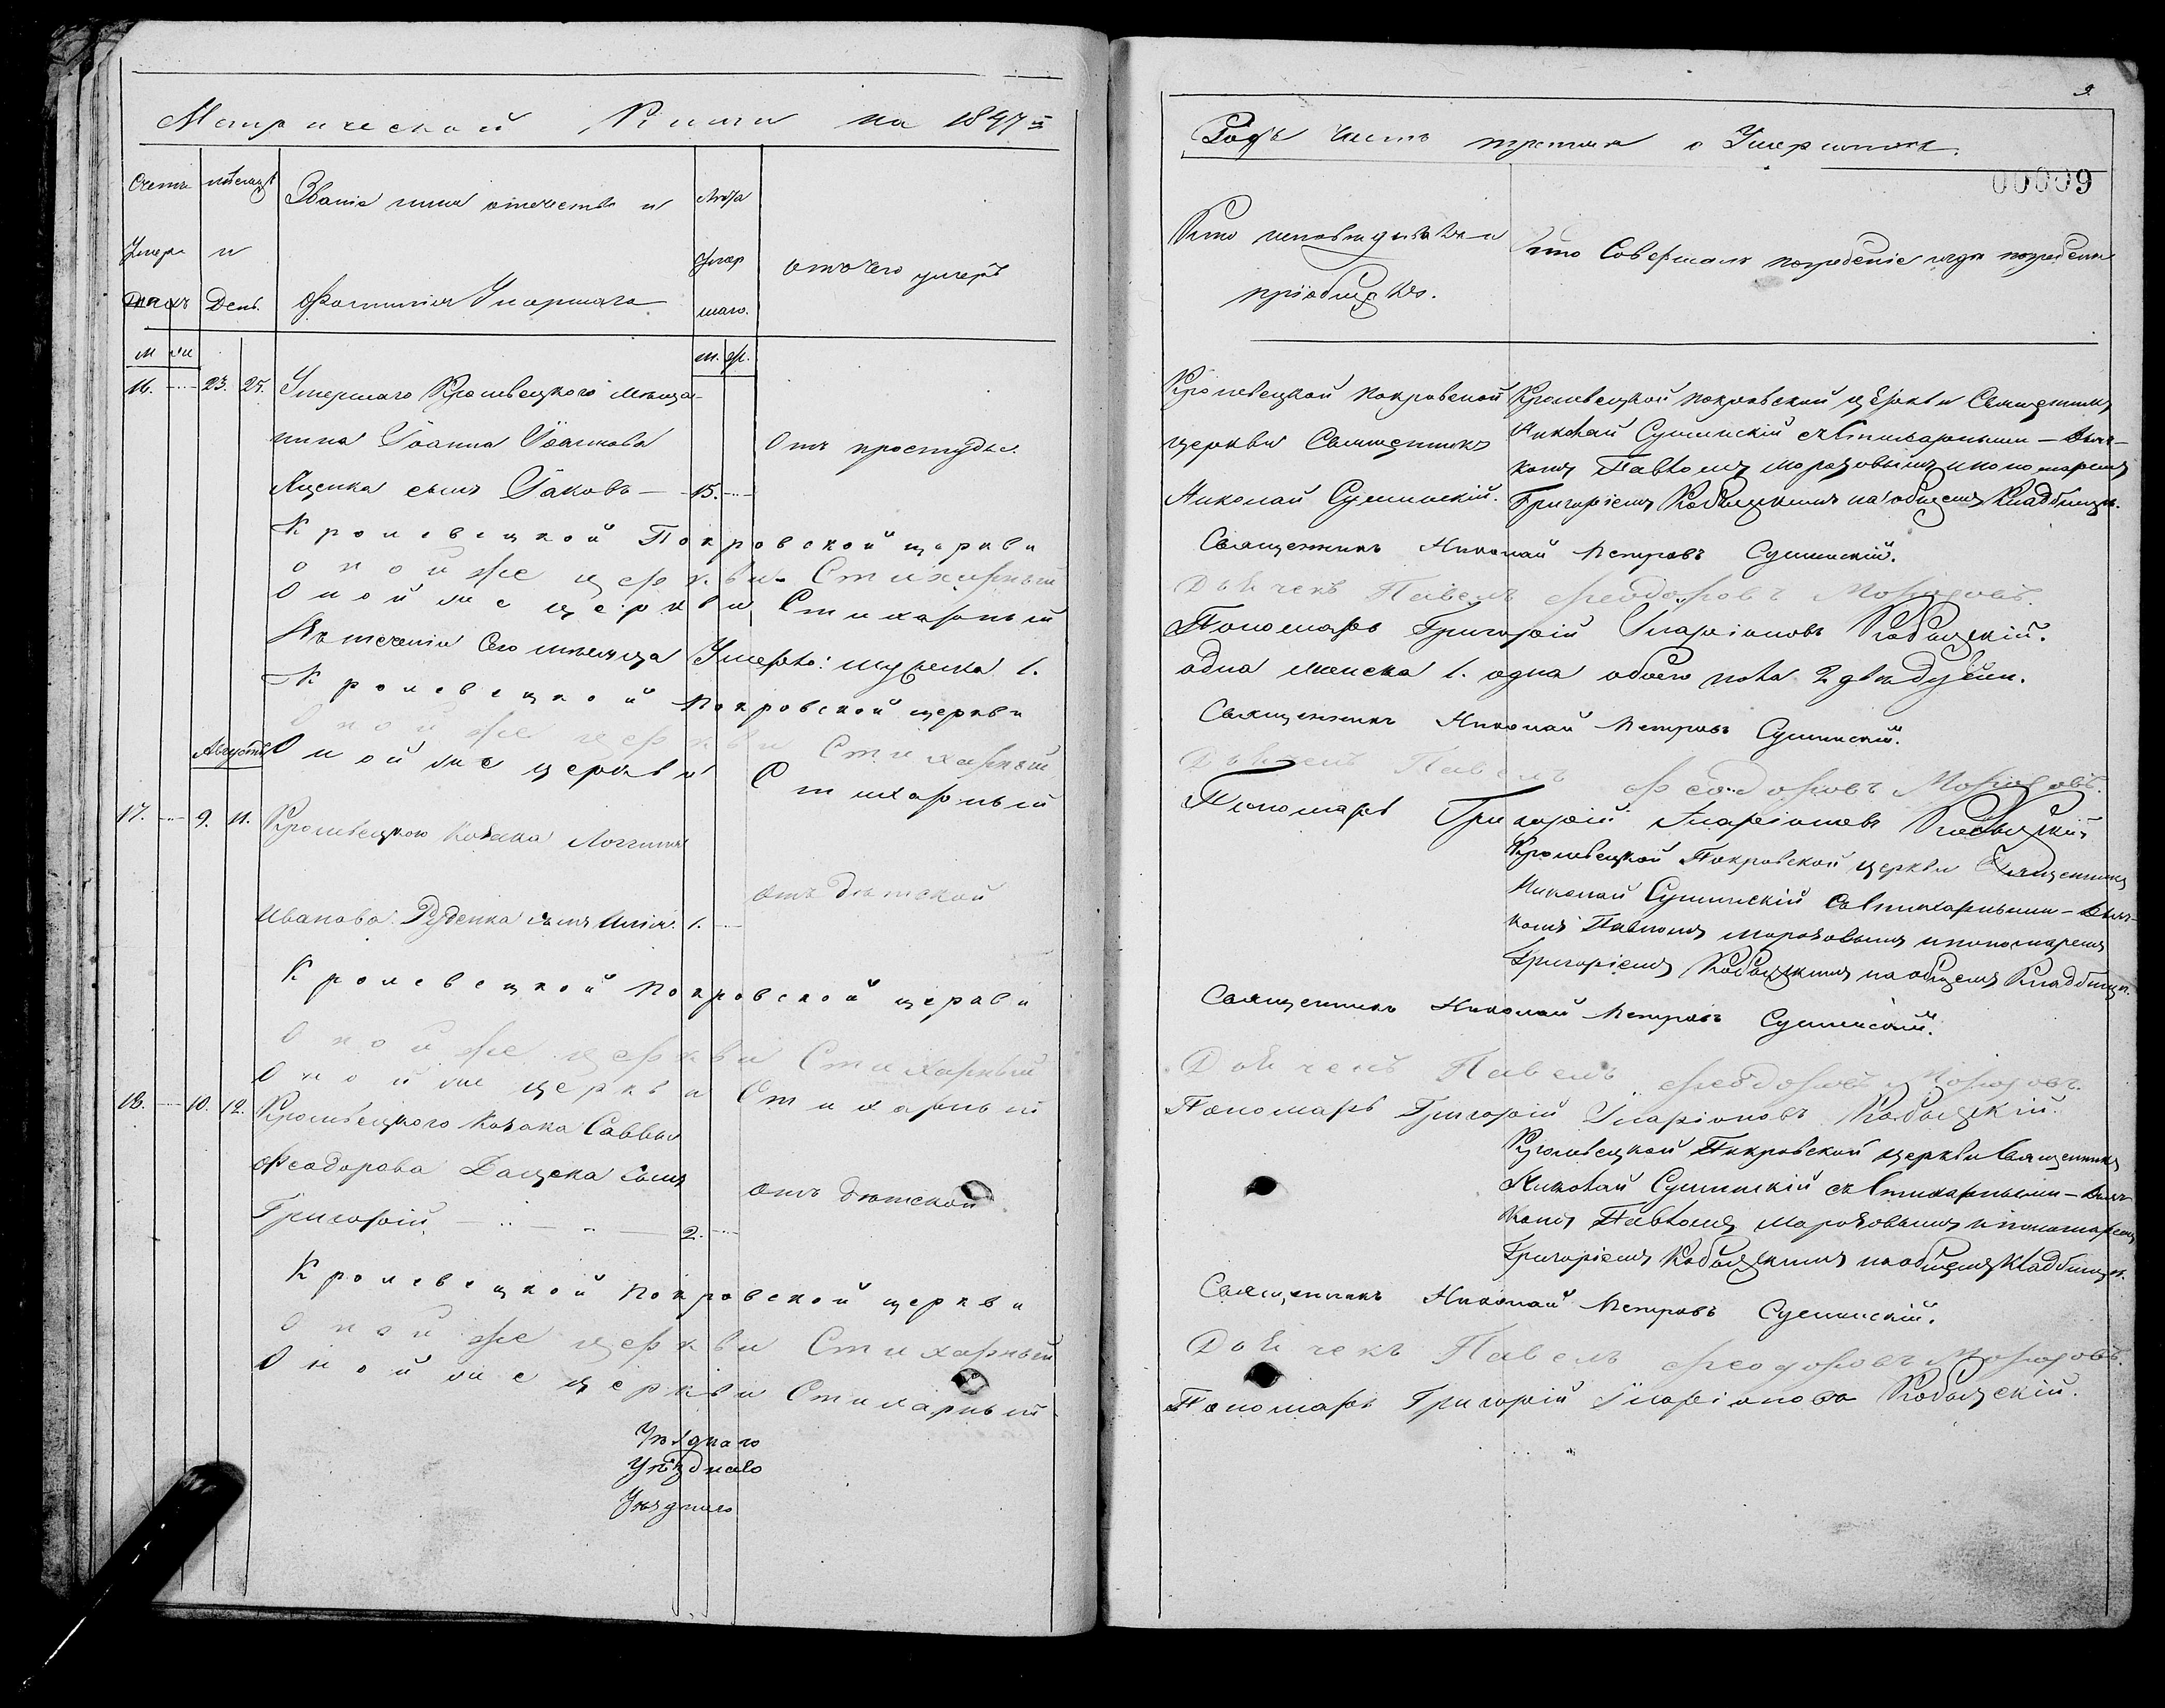 Метрической Книги на 1847й
Счетъ
Умер
шихъ
мѣсяцъ
и
День.
Званіе имя отечество и
Фамилія Умершаго
лѣта
Умер
шаго.
отъ чего умеръ
м ж
м. ж.
16. 23. 25. Умершаго Кролевецкого мѣща-
нина Іоанна
Яценка сынъ Іаковъ — 15. Отъ простуды.
Кролевецкой Покровской церкви
Оной же церкви Стихарный
Оной же церкви Стихарный
Въ теченіи Сего мѣсяца Умерло: мужеска 1.
Кролевецкой Покровской церкви
Оной же церкви Стихарный
Августъ
Оной же церкви Стихарный
17. 9. 11. Кролевецкого Козака Логгина
отъ дѣтской
Иванова Руденка сынъ 1.
Кролевецкой Покровской церкви
Оной же церкви Стихарный
Оной же церкви Стихарный
18. 10. 12. Кролевецкого Козака Саввы
Феодорова сынъ
отъ дѣтской
Григорій — 2.
Кролевецкой Покровской церкви
Оной же церкви Стихарный
Оной же церкви Стихарный
Уѣзднаго
Уѣзднаго
Уѣзднаго
9.
Годъ Часть третья о Умершихъ.
00009
Кто исповѣдывалъ и
пріобщалъ.
Кто Совершалъ погребеніе и гдѣ погребены
Кролевецкой Покровской
церкви Священникъ
Николай Сушинскій.
Кролевецкой Покровской церкви Священникъ
Николай Сушинскій съ Стихарными — Дьяч-
комъ Павломъ Морозовымъ и пономаремъ
Григоріемъ Кобыжскимъ на общемъ Кладбищѣ.
Священникъ Николай Петровъ Сушинскій.
Дьячекъ Павелъ Феодоровъ Морозовъ.
Пономарь Григорій Иларіоновъ Кобыжскій.
одна женска 1. одна обоего пола 2 двѣ души.
Священникъ Николай Петровъ Сушинскій.
Дьячекъ Павелъ Феодоровъ Морозовъ.
Пономарь Григорій Иларіоновъ Кобыжскій
Кролевецкой Покровской церкви Священникъ
Николай Сушинскій съ Стихарными — Дьяч-
комъ Павломъ Морозовымъ и пономаремъ
Григоріемъ Кобыжскимъ на общемъ Кладбищѣ.
Священникъ Николай Петровъ Сушинскій.
Дьячекъ Павелъ Феодоровъ Морозовъ.
Пономарь Григорій Иларіоновъ Кобыжскій.
Кролевецкой Покровской церкви Священникъ
Николай Сушинскій съ Стихарными — Дьяч-
комъ Павломъ Морозовымъ и пономаремъ
Григоріемъ Кобыжскимъ на общемъ Кладбищѣ.
Священникъ Николай Петровъ Сушинскій.
Дьячекъ Павелъ Феодоровъ Морозовъ.
Пономарь Григорій Иларіоновъ Кобыжскій.